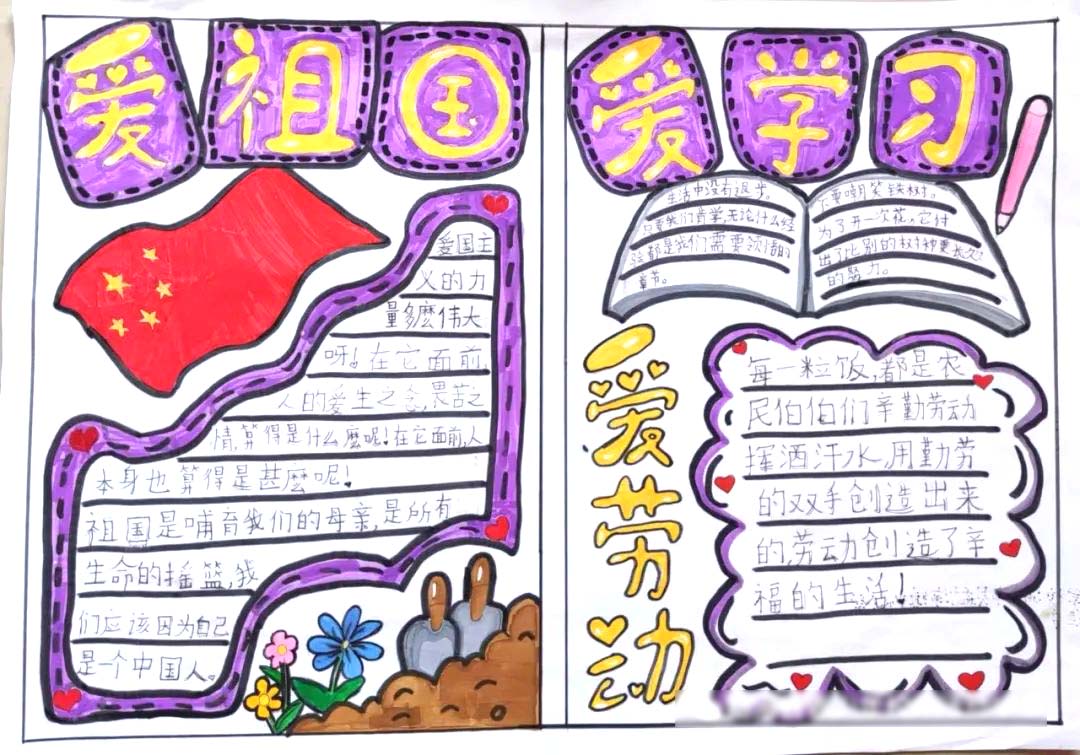 爱祖国
爱国主
义的力
量多麼伟大
呀！在它面前
人的爱生之念，畏苦之
情，算得是什么麼呢！在它面前，人
本身也算得是甚麼呢！
祖国是哺育我们的母亲，是所有
生命的摇篮，我
们应该因为自己
是一个中国人。
爱学习
生活中没有退步。
只要我们肯学，无论什么经
验都是我们需要领悟的
章节。
不要嘲笑铁树。
为了开一次花，它付
出了比别的树种更长久
的努力。
爱劳动
每一粒饭，都是农
民伯伯们辛勤劳动
挥洒汗水，用勤劳
的双手创造出来
的，劳动创造了辛
福的生活！